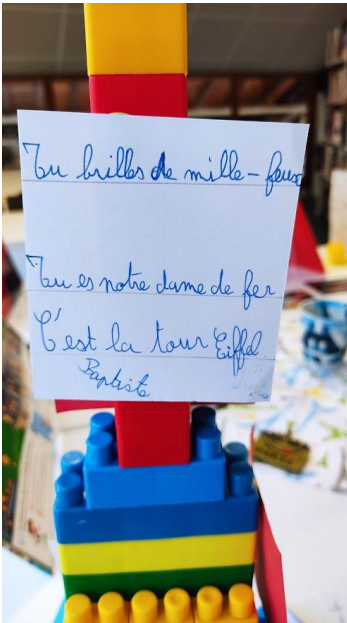 Tu brilles de mille-feux
Tu es notre dame de fer
C'est la tour Eiffel.
Baptiste